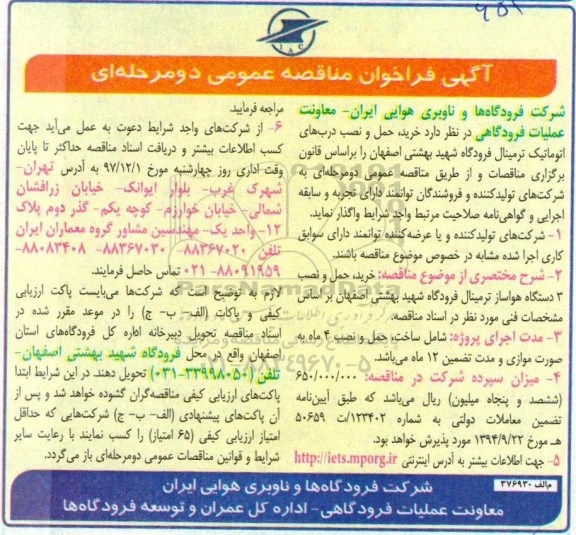 ۶۵۱
IAC
آگهی فراخوان مناقصه عمومی دومرحله‌ای
شرکت فرودگاه‌ها و ناوبری هوایی ایران- معاونت
عملیات فرودگاهی در نظر دارد خرید، حمل و نصب درب‌های
اتوماتیک ترمینال فرودگاه شهید بهشتی اصفهان را براساس قانون
برگزاری مناقصات و از طریق مناقصه عمومی دومرحله‌ای به
شرکت‌های تولیدکننده و فروشندگان توانمند دارای تجربه و سابقه
اجرایی و گواهی‌نامه صلاحیت مرتبط واجد شرایط واگذار نماید.
۱- شرکت‌های تولیدکننده و یا عرضه‌کننده توانمند دارای سوابق
کاری اجرا شده مشابه در خصوص موضوع مناقصه باشند.
۲- شرح مختصری از موضوع مناقصه: خرید، حمل و نصب
۳ دستگاه هواساز ترمینال فرودگاه شهید بهشتی اصفهان بر اساس
مشخصات فنی مورد نظر در اسناد مناقصه.
۳- مدت اجرای پروژه: شامل ساخت، حمل و نصب ۴ ماه به
صورت موازی و مدت تضمین ۱۲ ماه می‌باشد.
۴- میزان سپرده شرکت در مناقصه: ۶۵۰/۰۰۰/۰۰۰
(ششصد و پنجاه میلیون) ریال می‌باشد که طبق آیین‌نامه
تضمین معاملات دولتی به شماره ۱۲۳۴۰۲/ت ۵۰۶۵۹
هـ مورخ ۱۳۹۴/۹/۲۲ مورد پذیرش خواهد بود.
۵- جهت اطلاعات بیشتر به آدرس اینترنتی http://iets.mporg.ir
مراجعه فرمایید.
۶- از شرکت‌های واجد شرایط دعوت به عمل می‌آید جهت
کسب اطلاعات بیشتر و دریافت اسناد مناقصه حداکثر تا پایان
وقت اداری روز چهارشنبه مورخ ۹۷/۱۲/۱ به آدرس تهران-
شهرک غرب- بلوار ایوانک- خیابان زرافشان
شمالی- خیابان خوارزم- کوچه یکم- گذر دوم پلاک
۱۲- واحد یک- مهندسین مشاور گروه معماران ایران
تلفن ۸۸۳۶۷۰۲۰- ۸۸۳۶۷۰۳۰- ۸۸۰۸۳۴۰۸-
۸۸۰۹۱۹۵۹-۰۲۱ تماس حاصل فرمایند.
لازم به توضیح است که شرکت‌ها می‌بایست پاکت ارزیابی
کیفی و پاکات (الف- ب- ج) را در موعد مقرر شده در
اسناد مناقصه تحویل دبیرخانه اداره کل فرودگاه‌های استان
اصفهان واقع در محل فرودگاه شهید بهشتی اصفهان-
تلفن (۳۳۹۹۸۰۵۰-۰۳۱) تحویل دهند. در این شرایط ابتدا
پاکت‌های ارزیابی کیفی مناقصه‌گران گشوده خواهد شد و پس از
آن پاکت‌های پیشنهادی (الف- ب- ج) شرکت‌هایی که حداقل
امتیاز ارزیابی کیفی (۶۵ امتیاز) را کسب نمایند با رعایت سایر
شرایط و قوانین مناقصات عمومی دومرحله‌ای باز می‌گردد.
م‌الف ۳۷۶۹۳۰
شرکت فرودگاه‌ها و ناوبری هوایی ایران
معاونت عملیات فرودگاهی- اداره کل عمران و توسعه فرودگاه‌ها
ParsNamadData